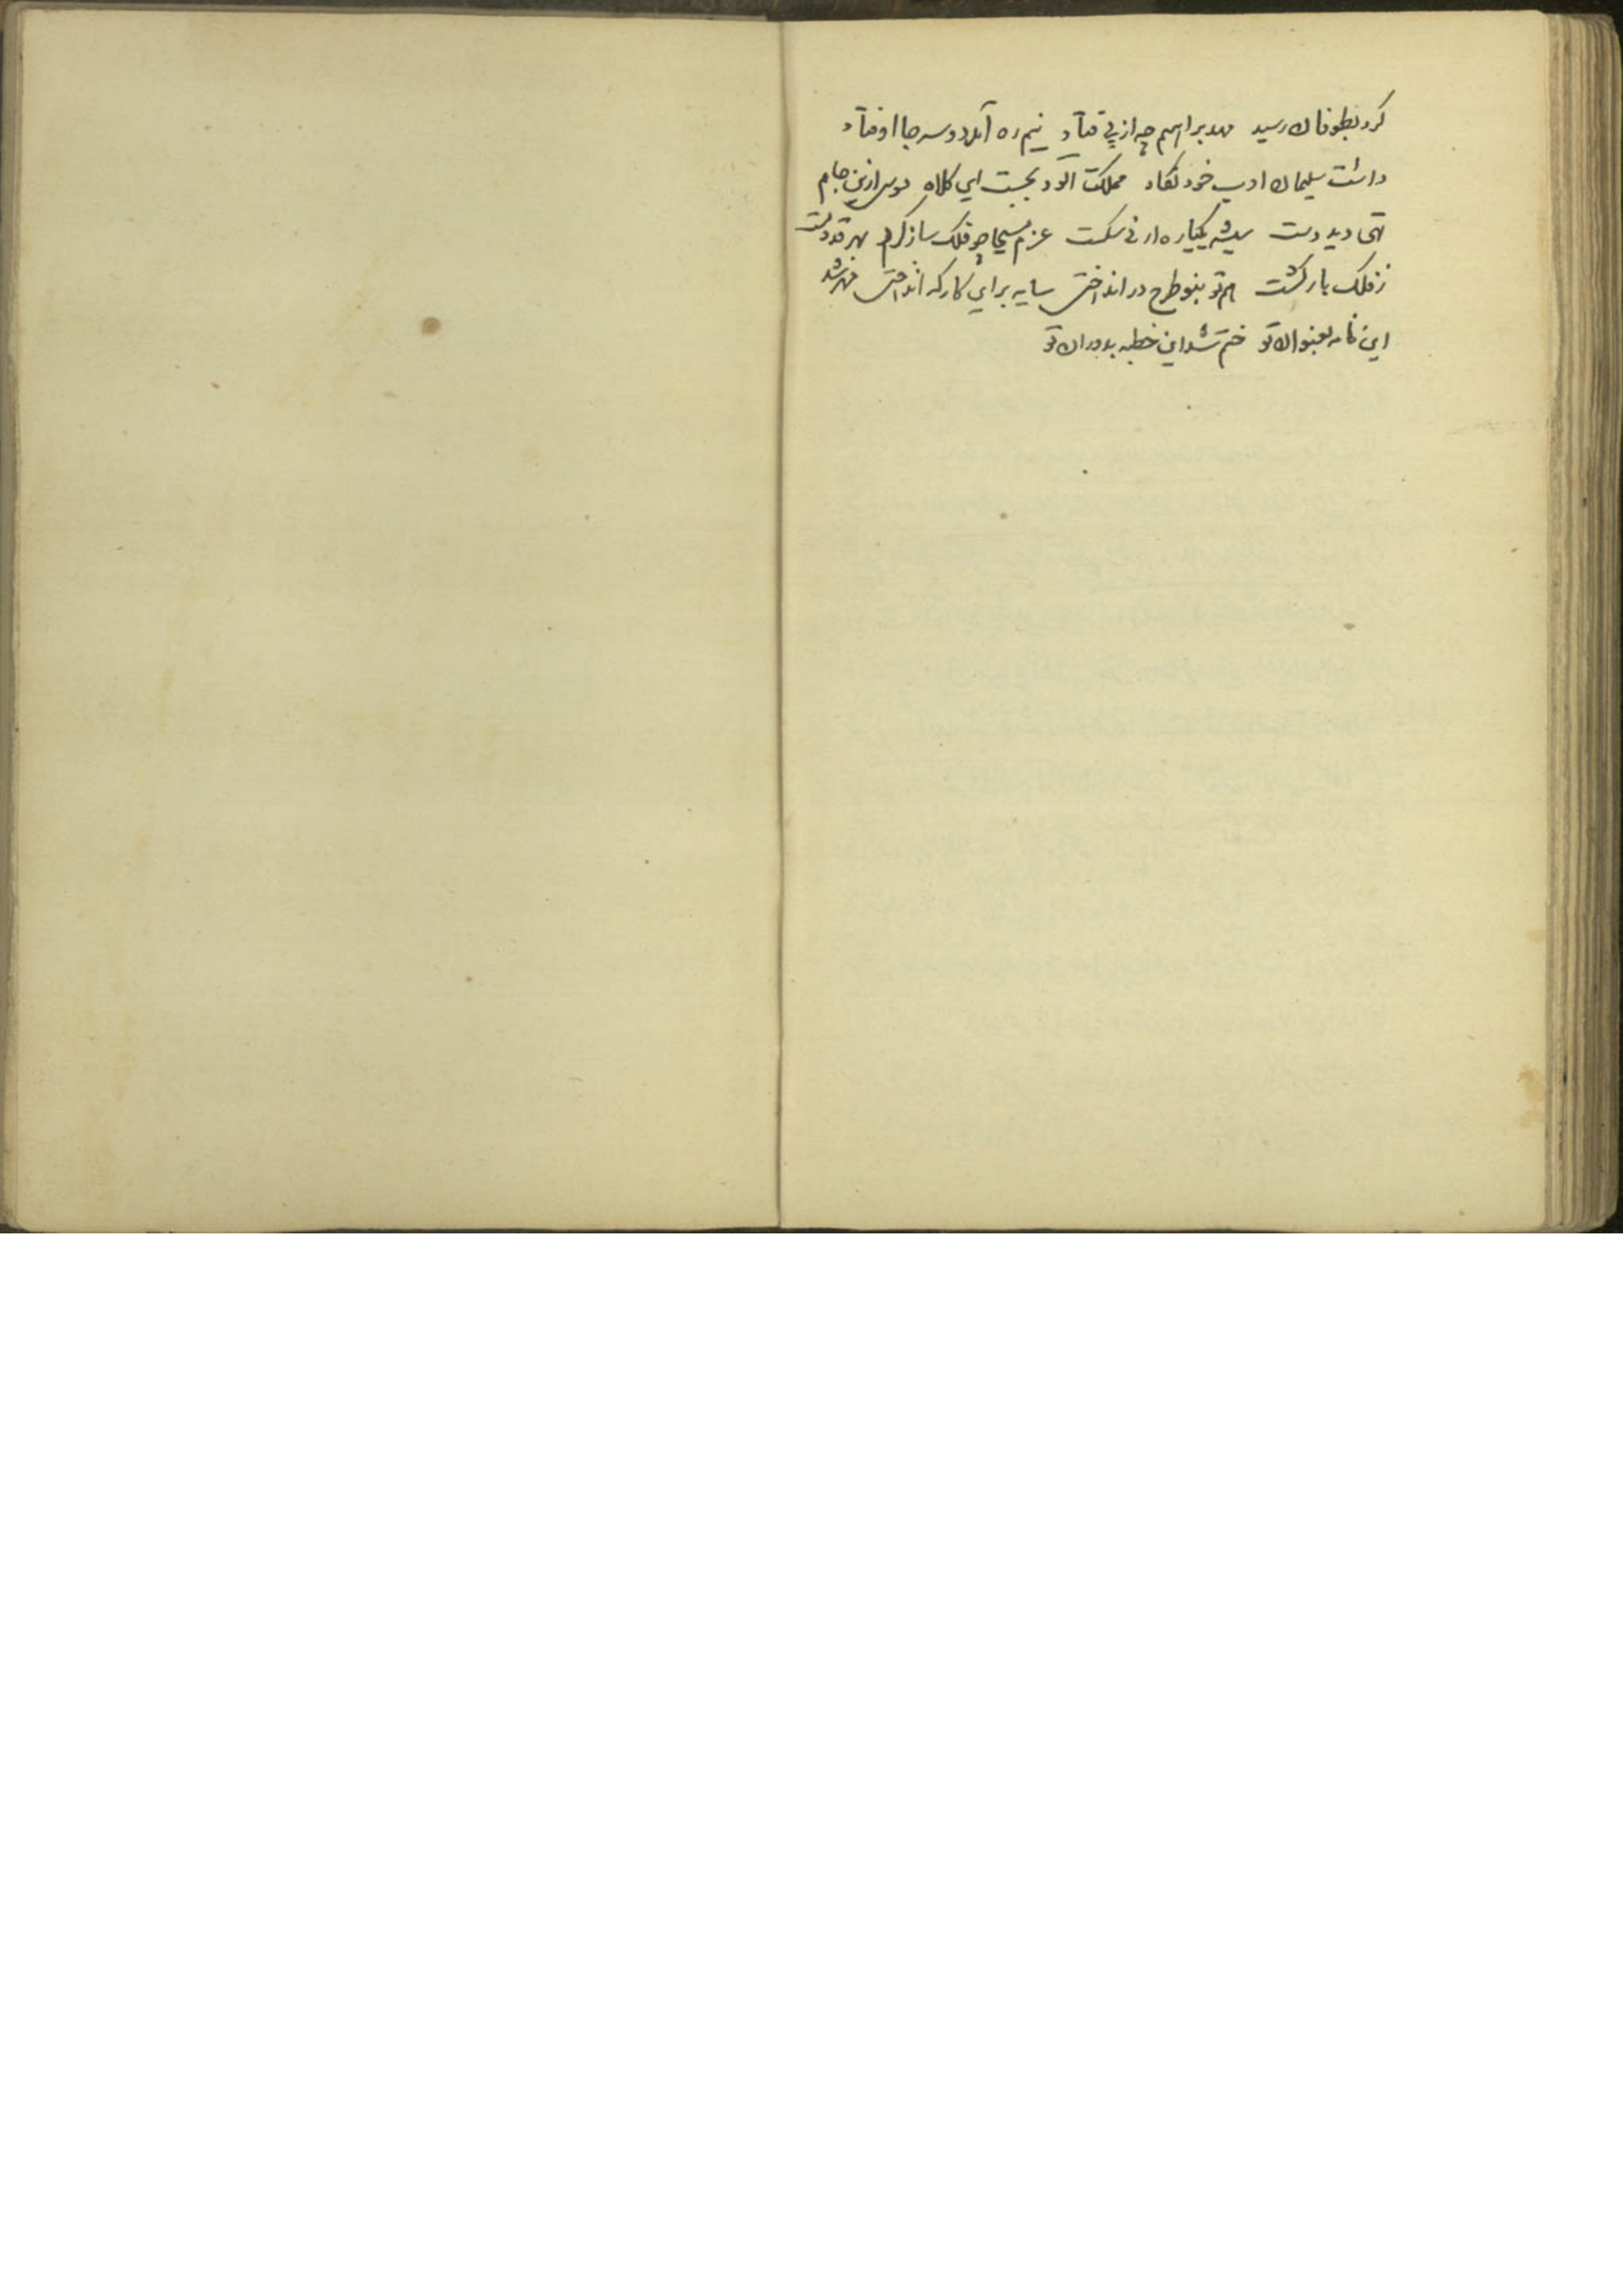 کرد بطوفان رسید مهد براهیم چه از پی فتاد نیم ره آمد دو سه جا اوفتاد
داشت سلیمان ادب خود نگاه مملکت آلود بجست این کلاه موسی ازین جام
تهی دید دست شیشه بکپاره ارنی شکست عزم مسیحا چو فلک ساز کرد
ز فلک بار گشت هم تو بنو طرح در انداختی سایه برین کار که انداختی مهر شد
این نامه بعنوان تو ختم شد این خطبه بدوران تو